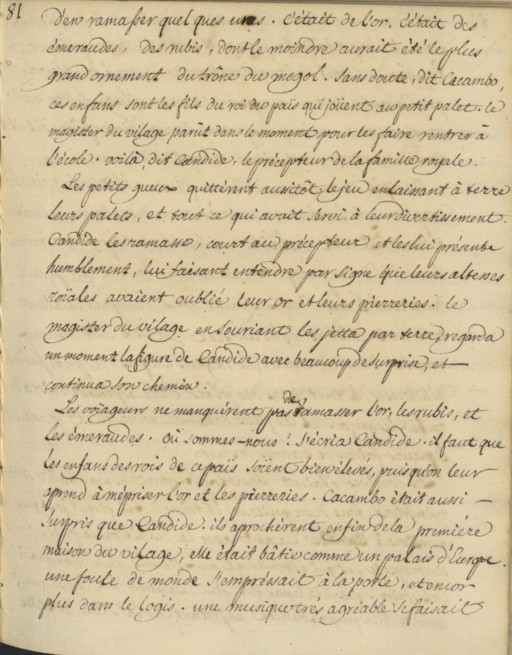 81
d'en ramasser quelques unes. c'était de l'or, c'était des
émeraudes, des rubis, dont le moindre aurait été le plus
grand ornement du trône du mogol. sans doute, dit Cacambo,
ces enfans sont les fils du roi du païs qui joüent au petit palet. le
magister du vilage parut dans le moment pour les faire rentrer à
l'école. voilà, dit Candide, le précepteur de la famille royale.
Les petits gueux quittèrent aussitôt le jeu en laissant à terre
leurs palets, et tout ce qui avait servi à leur divertissement.
Candide les ramasse, court au précepteur et les lui présente
humblement, lui faisant entendre par signe que leurs altesses
roïales avaient oublié leur or et leurs pierreries. le
magister du vilage en souriant les jetta par terre, regarda
un moment la figure de Candide avec beaucoup de surprise, et
continua son chemin.
Les voïageurs ne manquèrent pas de ramasser l'or, les rubis, et
les émeraudes. Où sommes-nous? s'écria Candide. il faut que
les enfans des rois de ce païs soïent bien élevés, puis qu'on leur
aprend à mépriser l'or et les pierreries. Cacambo était aussi
surpris que Candide. ils aprochèrent enfin de la première
maison du vilage, elle était bâtie comme un palais d'Europe.
une foule de monde s'empressait à la porte, et encor
plus dans le logis. une musique très agréable se faisait